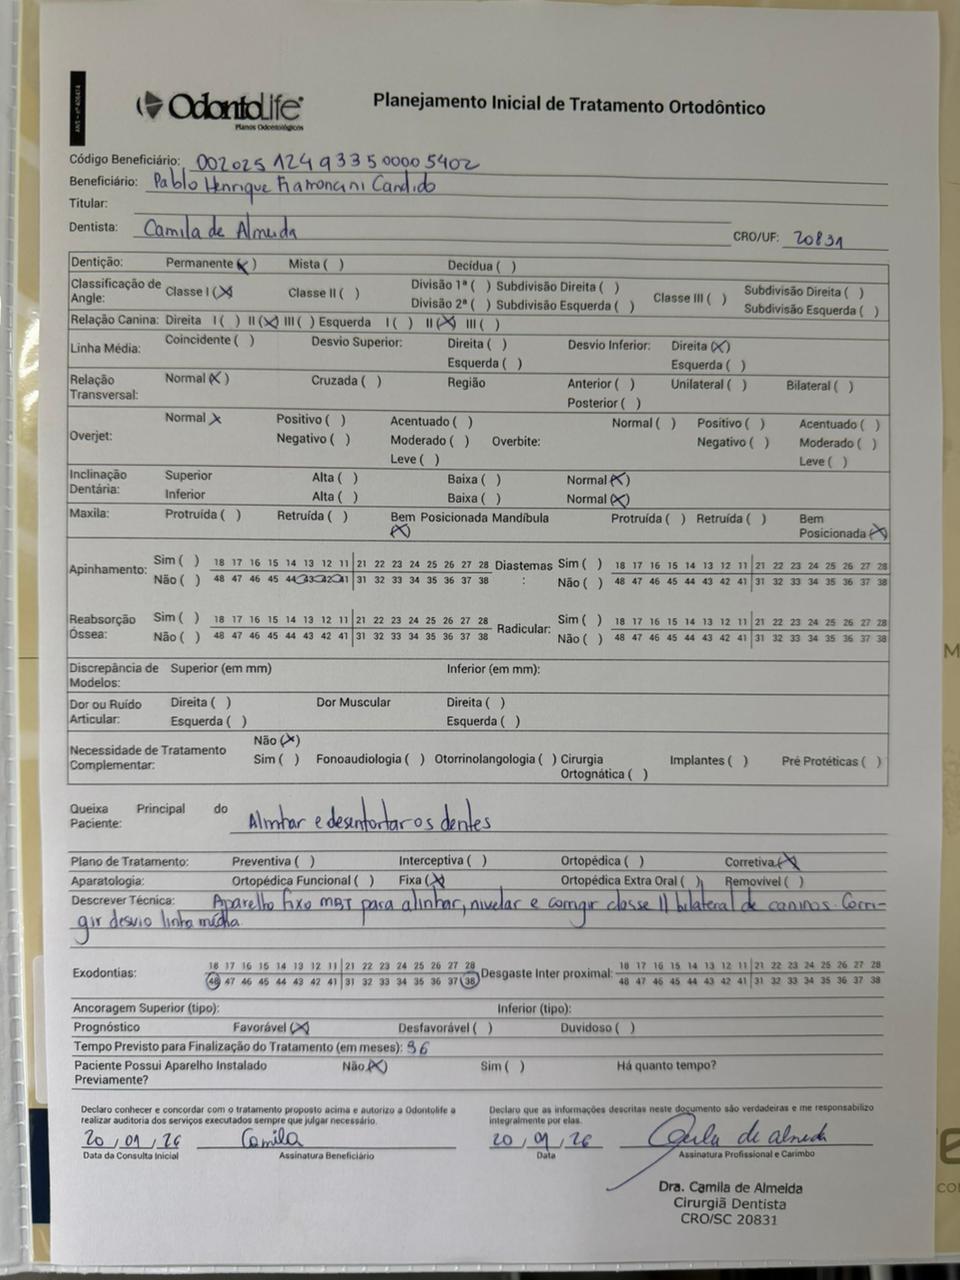 ANS - nº 406414
OdontoLife
Planos Odontológicos
Planejamento Inicial de Tratamento Ortodôntico
Código Beneficiário: 002025 124933500005402
Beneficiário: Pablo Henrique Framoncini Candido
Titular:
Dentista: Camila de Almeida CRO/UF: 20831
Dentição: Permanente (X) Mista ( ) Decídua ( )
Classificação de Angle: Classe I (X) Classe II ( ) Divisão 1ª ( ) Subdivisão Direita ( ) Classe III ( ) Subdivisão Direita ( )
Divisão 2ª ( ) Subdivisão Esquerda ( ) Subdivisão Esquerda ( )
Relação Canina: Direita I ( ) II (X) III ( ) Esquerda I ( ) II (X) III ( )
Linha Média: Coincidente ( ) Desvio Superior: Direita ( ) Desvio Inferior: Direita (X)
Esquerda ( ) Esquerda ( )
Relação Transversal: Normal (X) Cruzada ( ) Região Anterior ( ) Unilateral ( ) Bilateral ( )
Posterior ( )
Overjet: Normal X Positivo ( ) Acentuado ( ) Overbite: Normal ( ) Positivo ( ) Acentuado ( )
Negativo ( ) Moderado ( ) Negativo ( ) Moderado ( )
Leve ( ) Leve ( )
Inclinação Dentária: Superior Alta ( ) Baixa ( ) Normal (X)
Inferior Alta ( ) Baixa ( ) Normal (X)
Maxila: Protruída ( ) Retruída ( ) Bem Posicionada (X) Mandíbula Protruída ( ) Retruída ( ) Bem Posicionada (X)
Apinhamento: Sim ( ) 18 17 16 15 14 13 12 11 21 22 23 24 25 26 27 28 Diastemas: Sim ( ) 18 17 16 15 14 13 12 11 21 22 23 24 25 26 27 28
Não ( ) 48 47 46 45 44 43 42 41 31 32 33 34 35 36 37 38 Não ( ) 48 47 46 45 44 43 42 41 31 32 33 34 35 36 37 38
Reabsorção Óssea: Sim ( ) 18 17 16 15 14 13 12 11 21 22 23 24 25 26 27 28 Radicular: Sim ( ) 18 17 16 15 14 13 12 11 21 22 23 24 25 26 27 28
Não ( ) 48 47 46 45 44 43 42 41 31 32 33 34 35 36 37 38 Não ( ) 48 47 46 45 44 43 42 41 31 32 33 34 35 36 37 38
Discrepância de Modelos: Superior (em mm) Inferior (em mm):
Dor ou Ruído Articular: Direita ( ) Dor Muscular Direita ( )
Esquerda ( ) Esquerda ( )
Necessidade de Tratamento Complementar: Não (X)
Sim ( ) Fonoaudiologia ( ) Otorrinolangologia ( ) Cirurgia Ortognática ( ) Implantes ( ) Pré Protéticas ( )
Queixa Principal do Paciente: Alinhar e desentortar os dentes
Plano de Tratamento: Preventiva ( ) Interceptiva ( ) Ortopédica ( ) Corretiva (X)
Aparatologia: Ortopédica Funcional ( ) Fixa (X) Ortopédica Extra Oral ( ) Removível ( )
Descrever Técnica: Aparelho fixo MBT para alinhar, nivelar e corrigir classe II bilateral de caninos. Corri-
gir desvio linha média.
Exodontias: 18 17 16 15 14 13 12 11 21 22 23 24 25 26 27 28 Desgaste Inter proximal: 18 17 16 15 14 13 12 11 21 22 23 24 25 26 27 28
48 47 46 45 44 43 42 41 31 32 33 34 35 36 37 38 48 47 46 45 44 43 42 41 31 32 33 34 35 36 37 38
Ancoragem Superior (tipo): Inferior (tipo):
Prognóstico Favorável (X) Desfavorável ( ) Duvidoso ( )
Tempo Previsto para Finalização do Tratamento (em meses): 36
Paciente Possui Aparelho Instalado Previamente? Não (X) Sim ( ) Há quanto tempo?
Declaro conhecer e concordar com o tratamento proposto acima e autorizo a Odontolife a
realizar auditoria dos serviços executados sempre que julgar necessário.
Declaro que as informações descritas neste documento são verdadeiras e me responsabilizo
integralmente por elas.
20/01/26 Camila 20/01/26 Camila de Almeida
Data da Consulta Inicial Assinatura Beneficiário Data Assinatura Profissional e Carimbo
Dra. Camila de Almeida
Cirurgiã Dentista
CRO/SC 20831